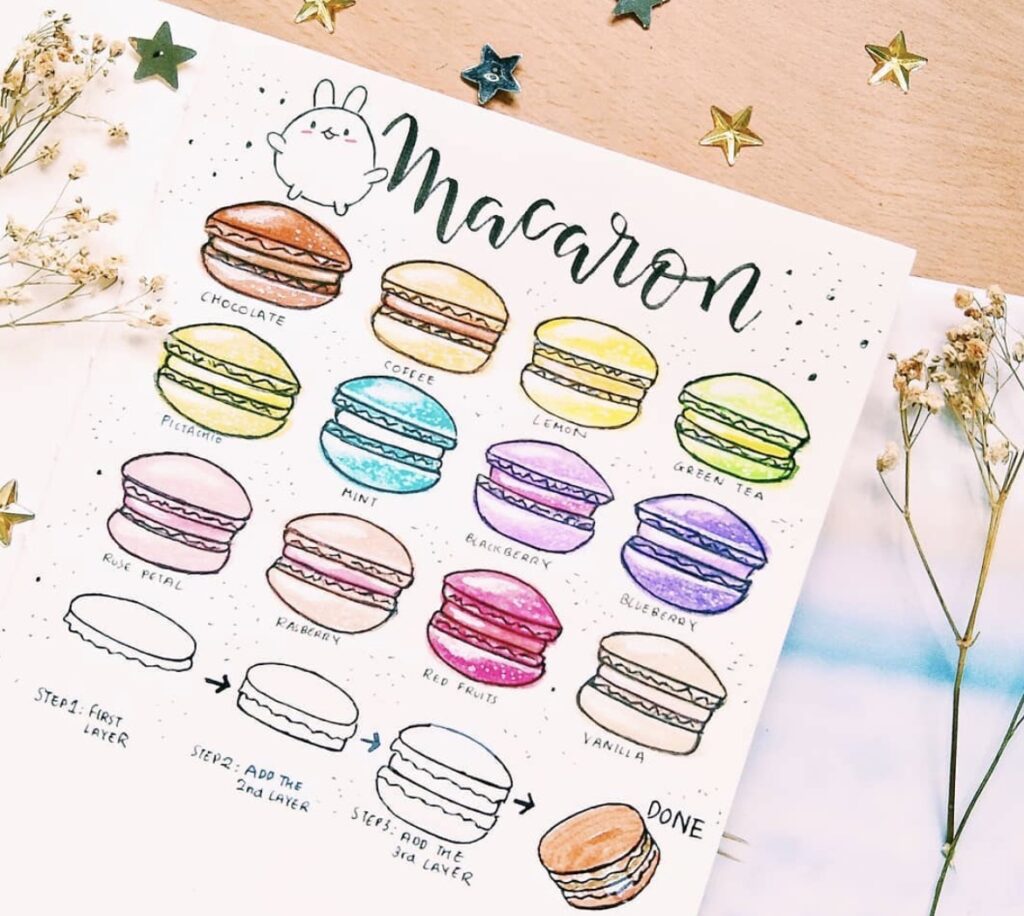 Macaron
CHOCOLATE
COFFEE
LEMON
GREEN TEA
PICTACHIO
MINT
BLACKBERRY
BLUEBERRY
ROSE PETAL
RASBERRY
RED FRUITS
VANILLA
STEP1: FIRST
LAYER
STEP2: ADD THE
2nd LAYER
STEP3: ADD THE
3rd LAYER
DONE